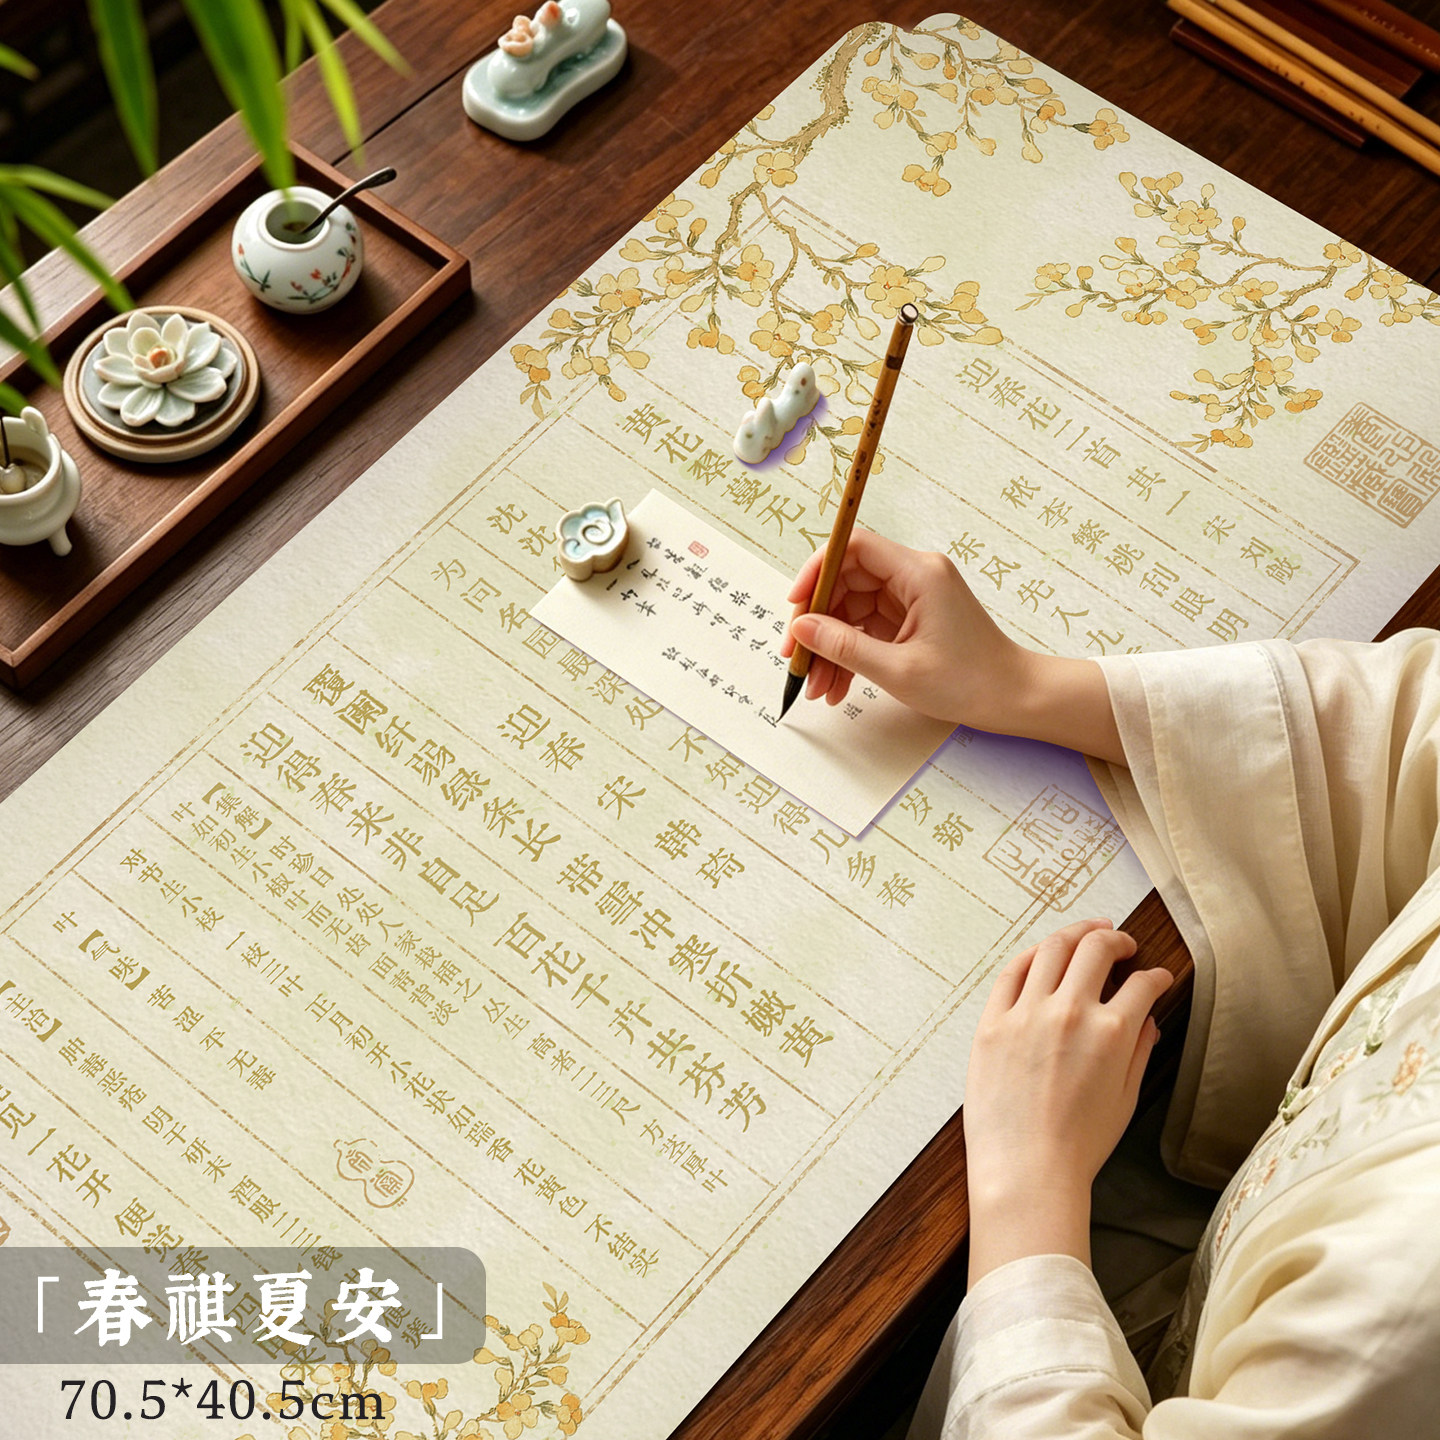 迎春花二首 其一 宋 刘敞
秾李繁桃刮眼明
东风先入九
黄花翠蔓无人
沈沈
岁新
为问名园最深处 不知迎得几多春
迎春 宋 韩琦
覆阑纤弱绿条长 带雪冲寒折嫩黄
迎得春来非自足 百花千卉共芬芳
【集解】时珍曰 处处人家栽插之 丛生 高者二三尺 方茎厚叶
叶如初生小椒叶而无齿 面青背淡
对节生小枝 一枝三叶 正月初开小花状如瑞香 花黄色 不结实
叶
【气味】苦涩 平 无毒
【主治】肿毒恶疮 阴干研末 酒服二三钱
一花开 便觉春
「春祺夏安」
70.5*40.5cm